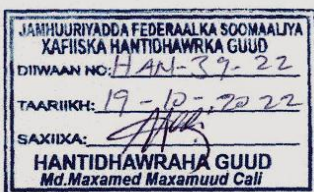 JAMHUURIYADDA FEDERAALKA SOOMAALIYA
XAFIISKA HANTIDHAWRKA GUUD
DIIWAAN NO: HAN-39-22
TAARIIKH: 19-10-2022
SAXIIXA:
HANTIDHAWRAHA GUUD
Md.Maxamed Maxamuud Cali